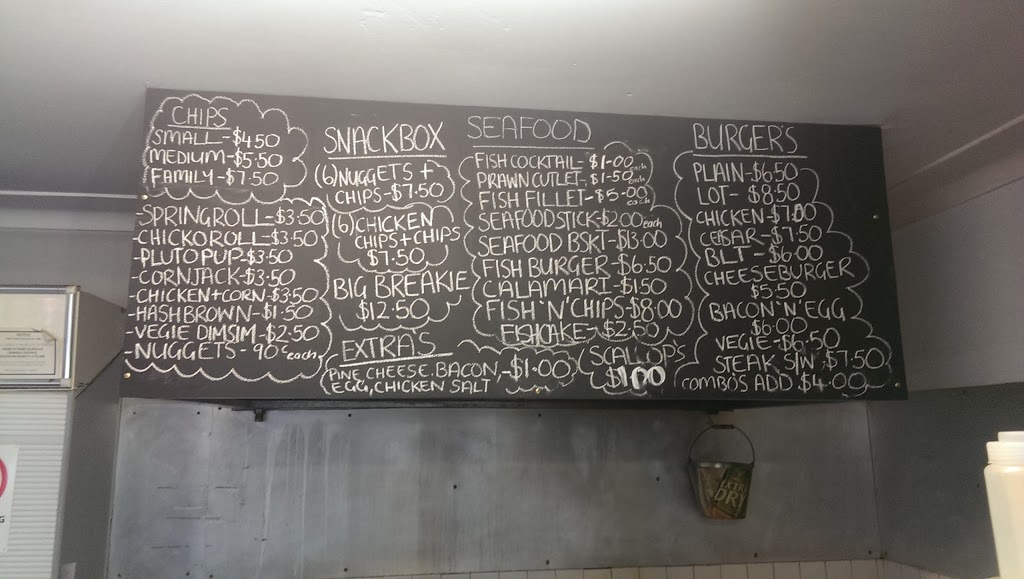 CHIPS
SMALL-$4.50
MEDIUM-$5.50
FAMILY-$7.50
-SPRINGROLL-$3.50
-CHICKOROLL-$3.50
-PLUTOPUP-$3.50
-CORNJACK-$3.50
-CHICKEN+CORN-$3.50
-HASHBROWN-$1.50
-VEGIE DIMSIM-$2.50
-NUGGETS-90c each
SNACKBOX
(6) NUGGETS +
CHIPS-$7.50
(6) CHICKEN
CHIPS+CHIPS
$7.50
BIG BREAKIE
$12.50
EXTRAS
PINE, CHEESE, BACON,
EGG, CHICKEN SALT
-$1.00
SEAFOOD
FISH COCKTAIL-$1.00 each
PRAWN CUTLET-$1.50 each
FISH FILLET-$5.00 each
SEAFOOD STICK-$2.00 each
SEAFOOD BSKT-$13.00
FISH BURGER-$6.50
CALAMARI-$1.50
FISH 'N' CHIPS-$8.00
FISHCAKE-$2.50
SCALLOPS
$1.00
BURGER'S
PLAIN-$6.50
LOT-$8.50
CHICKEN-$7.00
CESAR-$7.50
BLT-$6.00
CHEESEBURGER
$5.50
BACON 'N' EGG
$6.00
VEGIE-$6.50
STEAK S/W $7.50
COMBO'S ADD $4.00
EXTRA
DRY